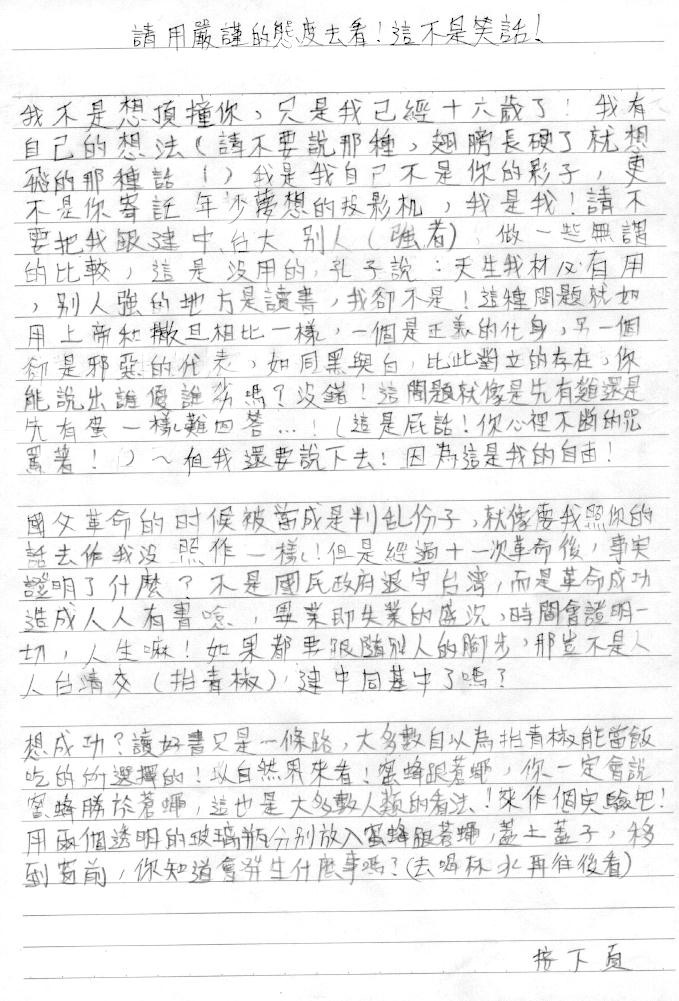 請用嚴謹的態度去看！這不是笑話！
我不是想頂撞你，只是我已經十六歲了！我有
自己的想法（請不要說那種，翅膀長硬了就想
飛的那種話！）我是我自己不是你的影子，更
不是你寄託年少夢想的投影机，我是我！請不
要把我跟建中、台大、別人（強者），做一些無謂
的比較，這是沒用的，孔子說：天生我材必有用
，別人強的地方是讀書，我卻不是！這種問題就如
用上帝和撒旦相比一樣，一個是正義的化身，另一個
卻是邪惡的代表，如同黑與白，比此對立的存在，你
能說出誰優誰劣嗎？沒錯！這問題就像是先有雞還是
先有蛋一樣難回答…！（這是屁話！你心裡不斷的咒
罵著！）～但我還要說下去！因為這是我的自由！
國父革命的时候被當成是判乱份子，就像要我照你的
話去作我沒照作一樣！但是經過十一次革命後，事实
證明了什麼？不是國民政府退守台濟，而是革命成功
造成人人有書唸，畢業即失業的盛況，時間會證明一
切，人生嘛！如果都要跟隨別人的腳步，那豈不是人
人台清交（抬青椒），建中同基中了嗎？
想成功？讀好書只是一條路，大多數自以為抬青椒能當飯
吃的所選擇的！以自然界來看！蜜蜂跟蒼蠅，你一定會說
蜜蜂勝於蒼蠅，這也是大多數人類的看法！來作個实驗吧！
用兩個透明的玻璃瓶分別放入蜜蜂跟蒼蠅，蓋上蓋子，移
到窗前，你知道會発生什麼事嗎？（去喝杯水再往後看）
接下頁